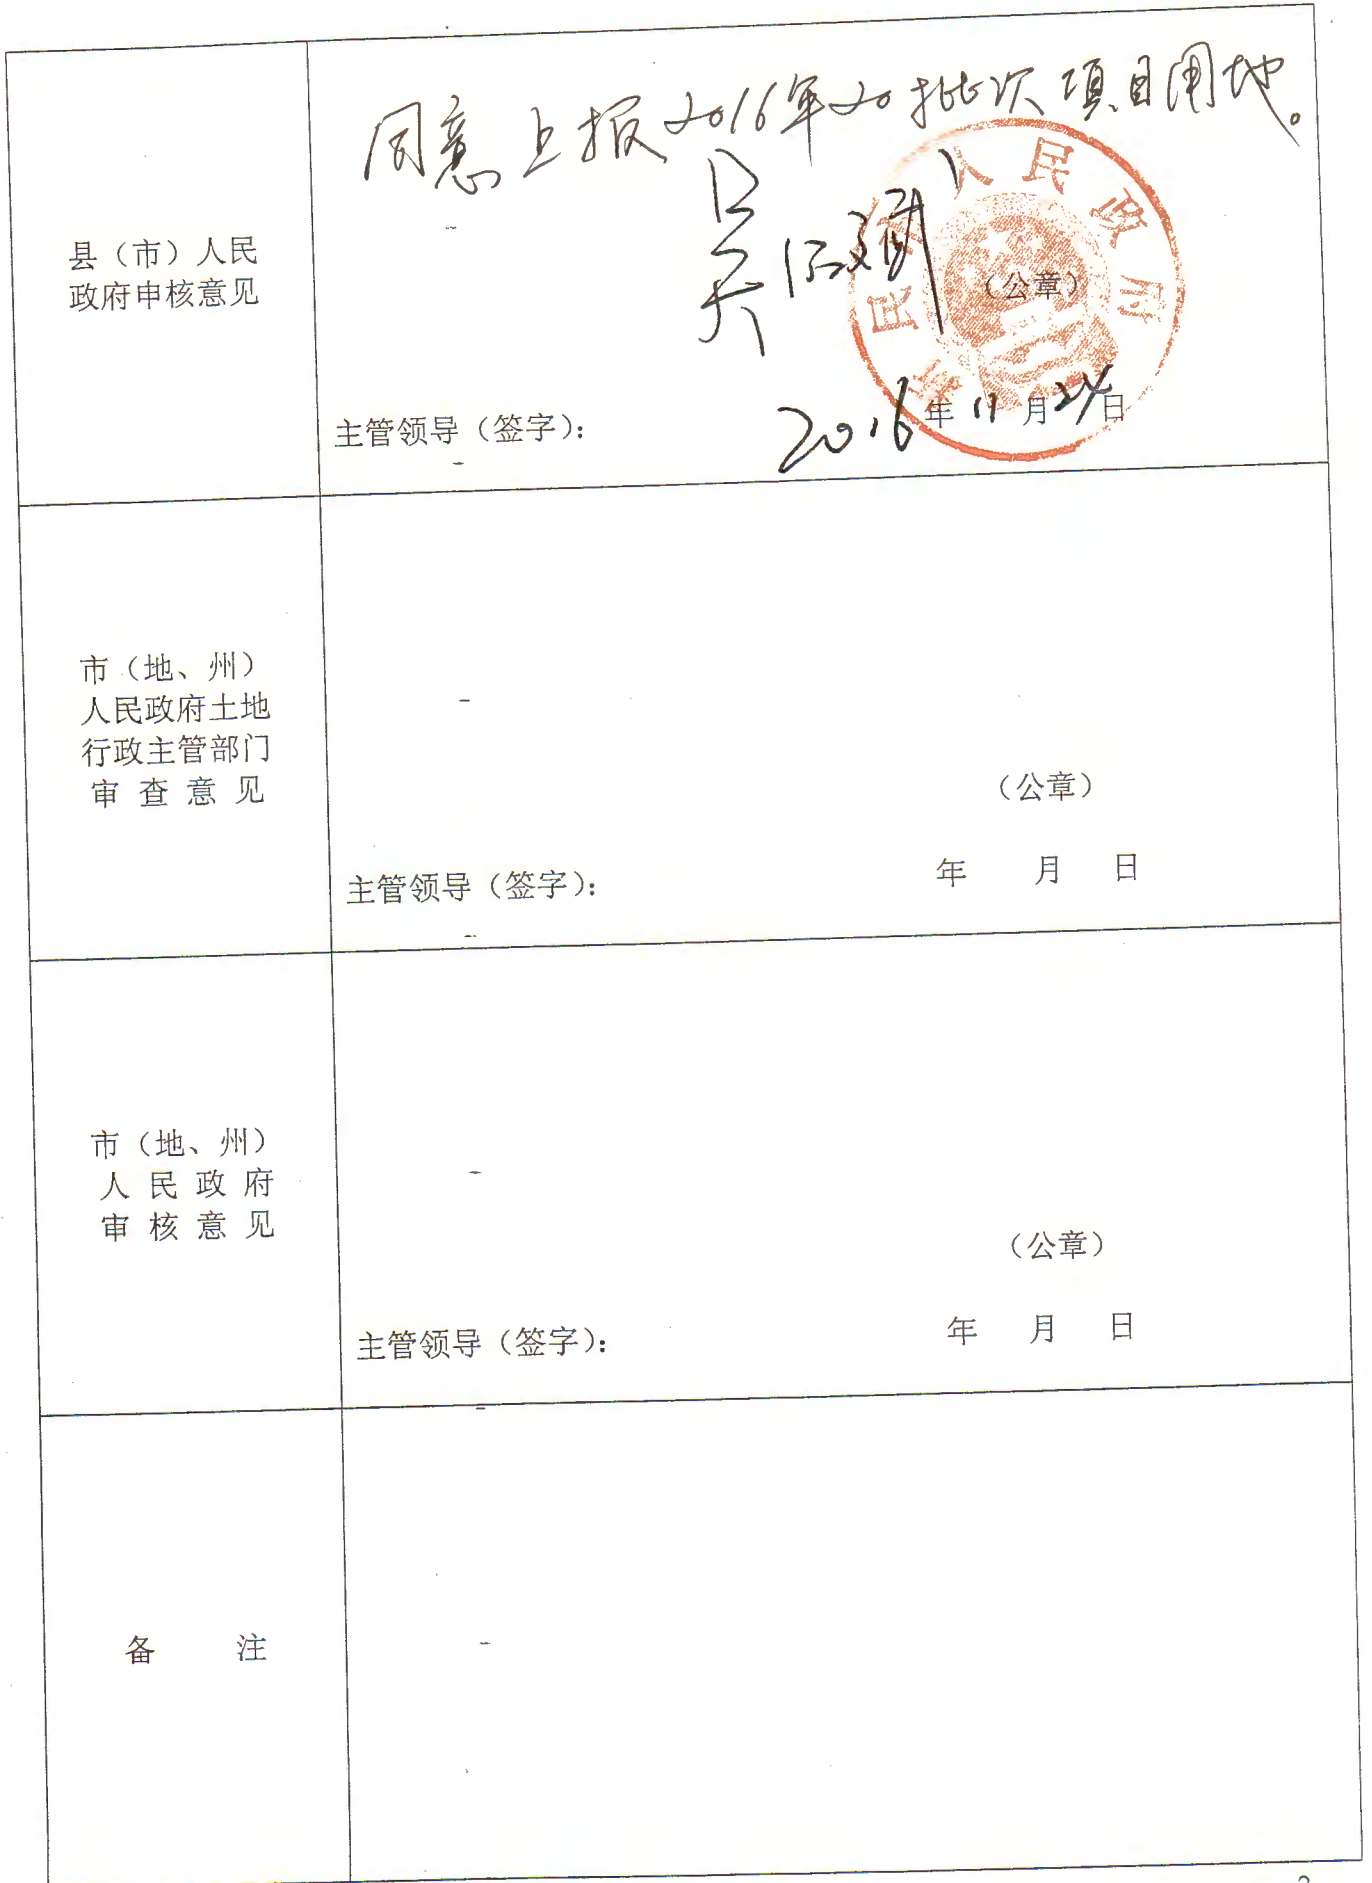 同意上报2016年20批次项目用地。
县（市）人民
政府审核意见
人民政府
（公章）
主管领导（签字）：
2016年11月24日
市（地、州）
人民政府土地
行政主管部门
审查意见
（公章）
主管领导（签字）：
年 月 日
市（地、州）
人民政府
审核意见
（公章）
主管领导（签字）：
年 月 日
备 注